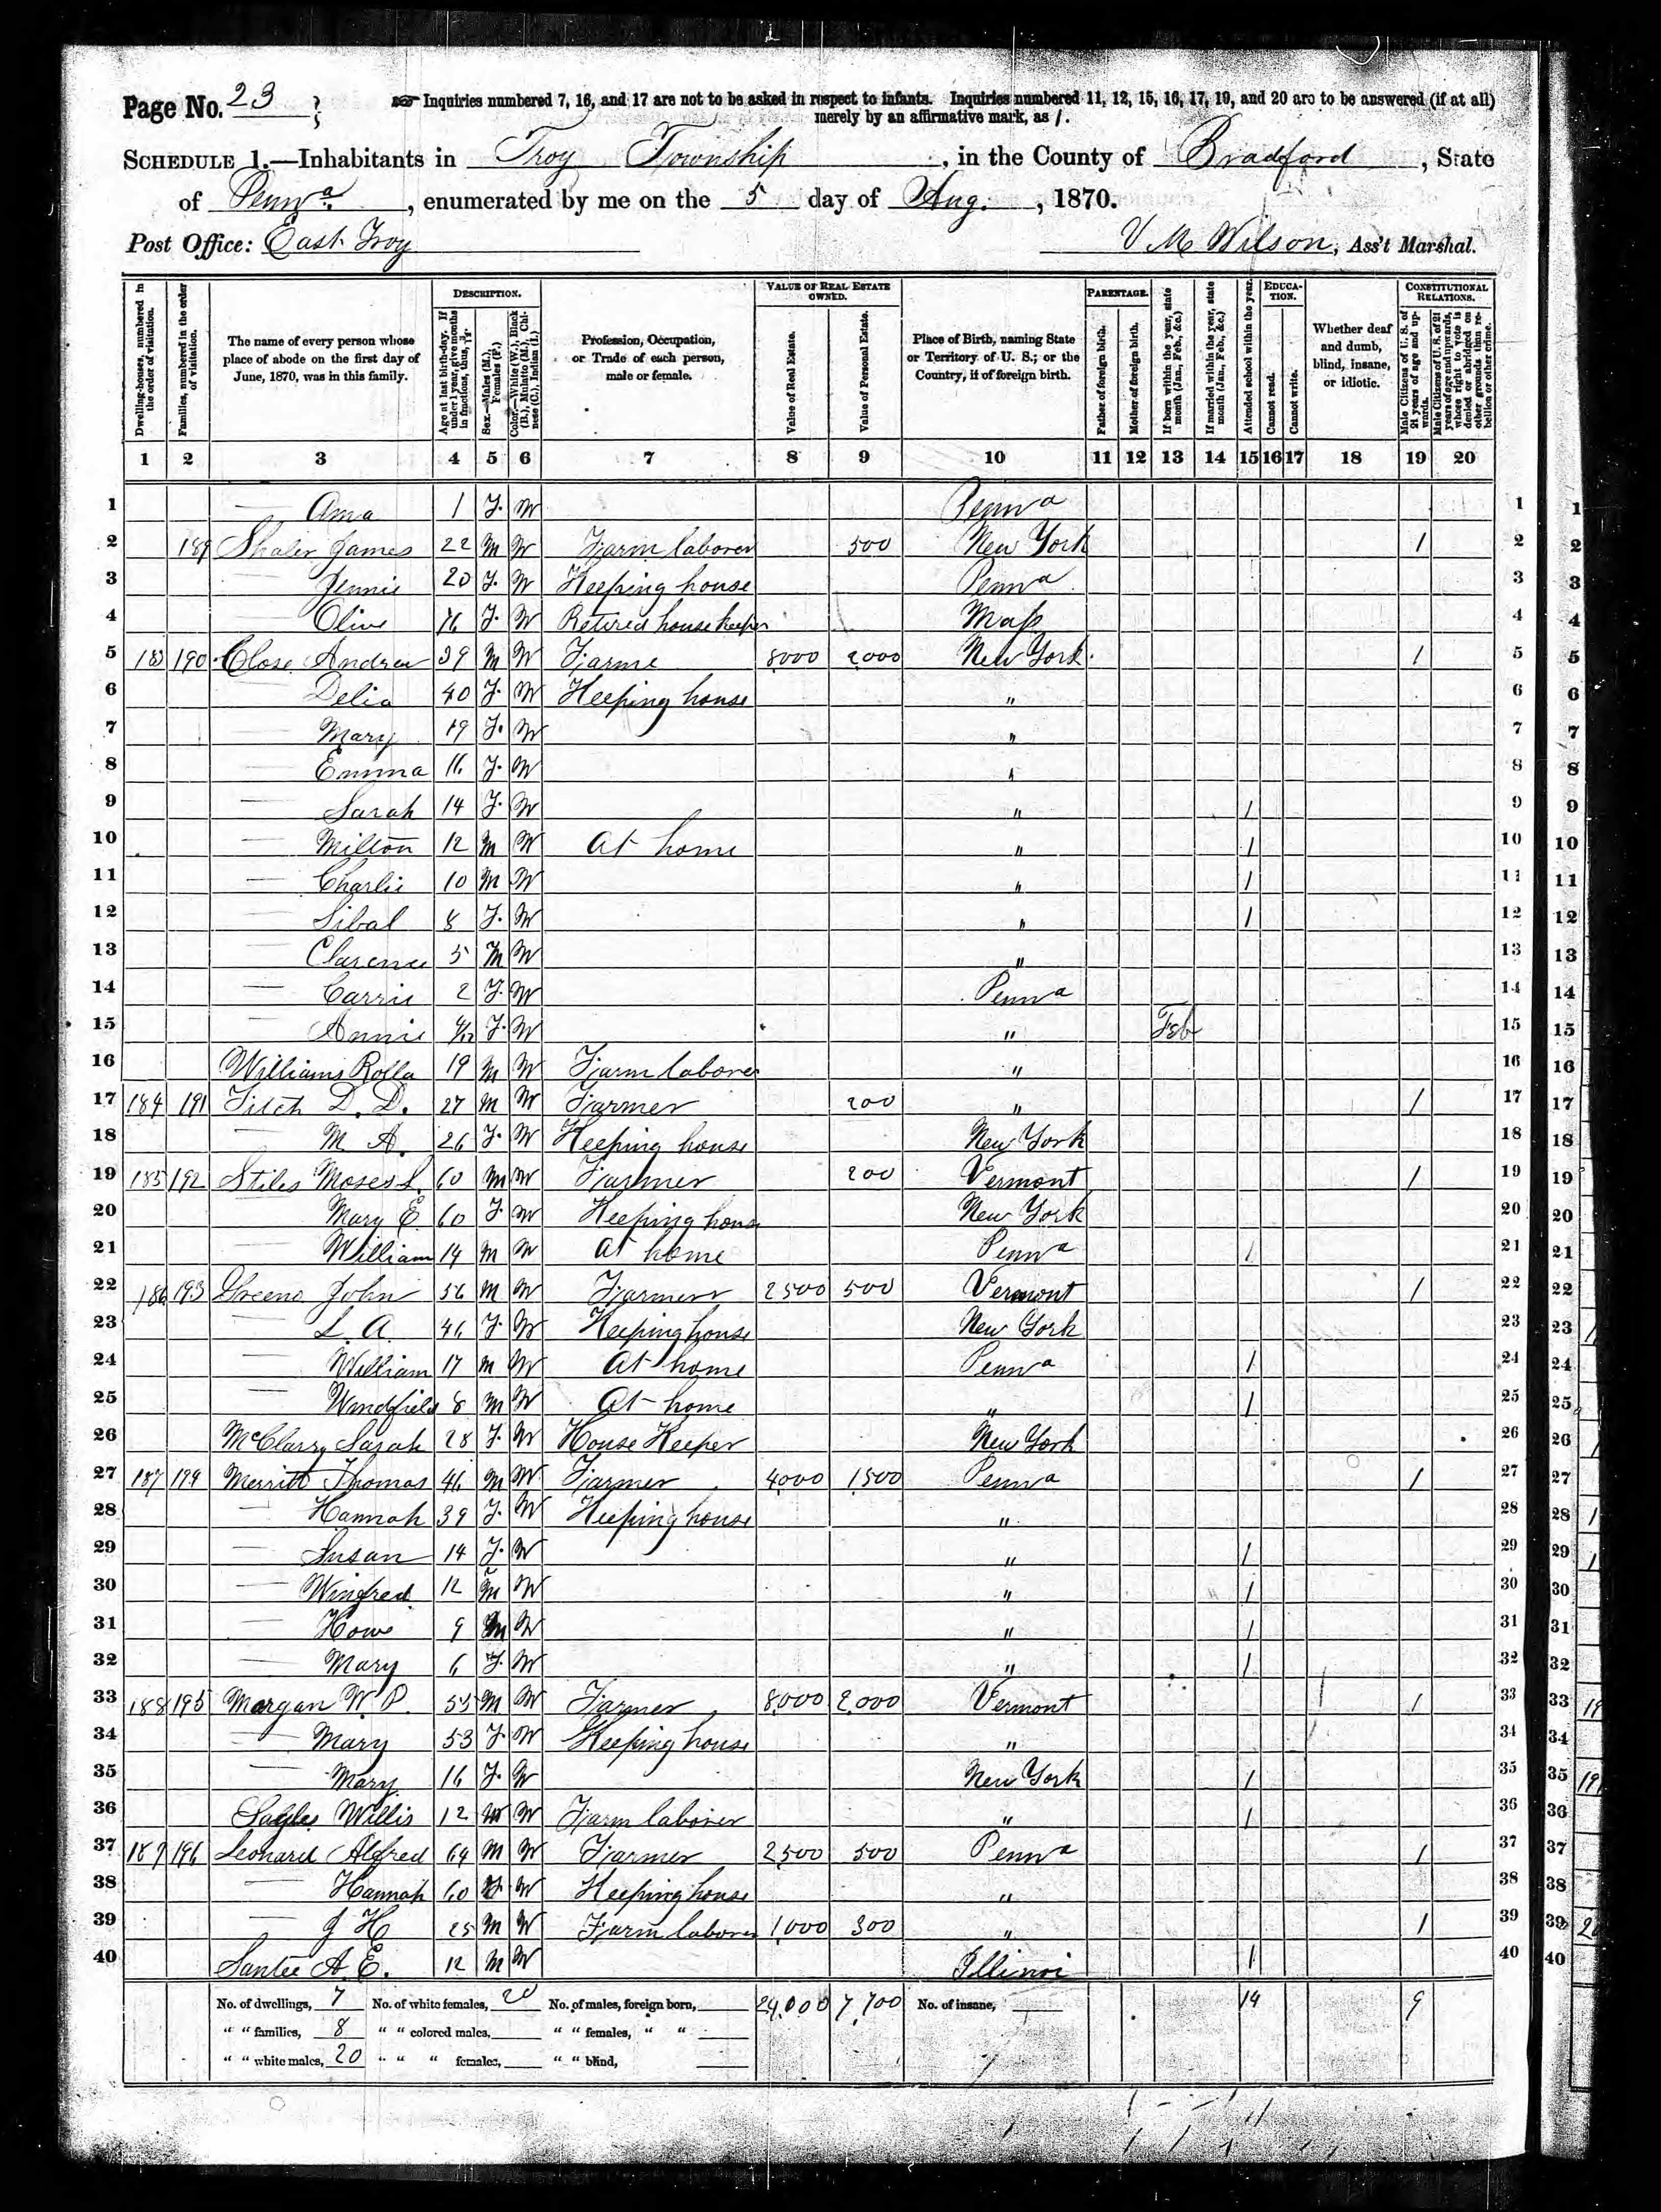 Page No. 23
Inquiries numbered 7, 16, and 17 are not to be asked in respect to infants. Inquiries numbered 11, 12, 15, 16, 17, 19, and 20 are to be answered (if at all)
merely by an affirmative mark, as /.
SCHEDULE 1.—Inhabitants in Troy Township, in the County of Bradford, State
of Penna., enumerated by me on the 5 day of Aug., 1870.
Post Office: East Troy V M Wilson, Ass't Marshal.
Dwelling-houses, numbered in the order of visitation.
Families, numbered in the order of visitation.
The name of every person whose place of abode on the first day of June, 1870, was in this family.
DESCRIPTION.
Age at last birth-day. If under 1 year, give months in fractions, thus, 3/12.
Sex.—Males (M.), Females (F.)
Color.—White (W.), Black (B.), Mulatto (M.), Chinese (C.), Indian (I.)
Profession, Occupation, or Trade of each person, male or female.
VALUE OF REAL ESTATE OWNED.
Value of Real Estate.
Value of Personal Estate.
Place of Birth, naming State or Territory of U. S.; or the Country, if of foreign birth.
PARENTAGE.
Father of foreign birth.
Mother of foreign birth.
If born within the year, state month (Jan., Feb., &c.)
If married within the year, state month (Jan., Feb., &c.)
Attended school within the year.
EDUCATION.
Cannot read.
Cannot write.
Whether deaf and dumb, blind, insane, or idiotic.
CONSTITUTIONAL RELATIONS.
Male Citizens of U. S. of 21 years of age and upwards.
Male Citizens of U. S. of 21 years of age and upwards, whose right to vote is denied or abridged on other grounds than rebellion or other crime.
1 2 3 4 5 6 7 8 9 10 11 12 13 14 15 16 17 18 19 20
1 — Ama 1 F. W Penna 1
2 189 Shaler James 22 M W Farm laborer 500 New York 1 2
3 Jennie 20 F. W Keeping house Penna 3
4 Olive 76 F. W Retired house keeper Mass 4
5 183 190 Close Andrew 39 M W Farme 8000 2000 New York 1 5
6 — Delia 40 F. W Keeping house " 6
7 — Mary 19 F. W " 7
8 — Emma 16 F. W " 8
9 — Sarah 14 F. W " 1 9
10 — Milton 12 M W At home " 1 10
11 — Charlie 10 M W " 1 11
12 — Sibal 8 F. W " 1 12
13 — Clarence 5 M W " 13
14 — Carrie 2 F. W Penna 14
15 — Annie 6/12 F. W " Feb 15
16 Williams Rolla 19 M W Farm laborer " 16
17 184 191 Fitch D. D. 27 M W Farmer 200 " 1 17
18 — M A. 26 F. W Keeping house New York 18
19 185 192 Stiles Moses L. 60 M W Farmer 200 Vermont 1 19
20 — Mary E 60 F. W Keeping house New York 20
21 — William 14 M W At home Penna 1 21
22 186 193 Greeno John 56 M W Farmer 2500 500 Vermont 1 22
23 — L. A. 46 F. W Keeping house New York 23
24 — William 17 M W At home Penna 1 24
25 — Windfield 8 M W At home " 1 25
26 McClarry Sarah 28 F. W House Keeper New York 26
27 187 194 Merritt Thomas 46 M W Farmer 4000 1500 Penna 1 27
28 — Hannah 39 F. W Keeping house " 28
29 — Susan 14 F. W " 1 29
30 — Winfred 12 M W " 1 30
31 — Howe 9 M W " 1 31
32 — Mary 6 F. W " 1 32
33 188 195 Morgan W. P. 55 M W Farmer 8000 2000 Vermont 1 33
34 — Mary 53 F. W Keeping house " 34
35 — Mary 16 F. W New York 1 35
36 Sayles Willis 12 M W Farm laborer " 1 36
37 189 196 Leonard Alfred 64 M W Farmer 2500 500 Penna 1 37
38 — Hannah 60 F W Keeping house " 38
39 — J H 25 M W Farm laborer 1000 300 " 1 39
40 Santee A. E. 12 M W Illinoi 1 40
No. of dwellings, 7 No. of white females, 20 No. of males, foreign born, 24,000 7,700 No. of insane, 14 9
" " families, 8 " " colored males, " " females, " "
" " white males, 20 " " " females, " " blind,